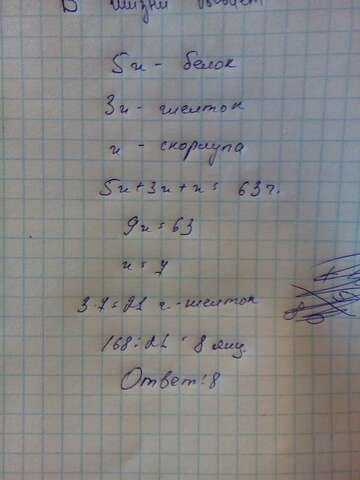 В жизни
5х - белок
3х - желток
х - скорлупа
5х+3х+х= 63 г.
9х=63
х=7
3·7=21 г - желток
168:21 = 8 яиц
Ответ: 8